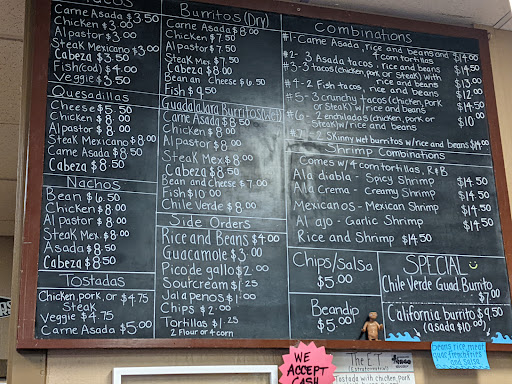 Tacos
Carne Asada $3.50
Chicken $3.00
Al pastor $3.00
Steak Mexicano $3.00
Cabeza $3.50
Fish(cod) $4.00
Veggie $3.50
Quesadillas
Cheese $5.50
Chicken $8.00
Al pastor $8.00
Steak Mexicano $8.00
Carne Asada $8.50
Cabeza $8.50
Nachos
Bean $6.50
Chicken $8.00
Al pastor $8.00
Steak Mex. $8.00
Asada $8.50
Cabeza $8.50
Tostadas
Chicken, pork, or $4.75
Steak
Veggie $4.75
Carne Asada $5.00
Burritos (Dry)
Carne Asada $8.00
Chicken $7.50
Al pastor $7.50
Steak Mex $7.50
Cabeza $8.00
Bean and Cheese $6.50
Fish $9.50
Guadalajara Burritos (Wet)
Carne Asada $8.50
Chicken $8.00
Al pastor $8.00
Steak Mex $8.00
Cabeza $8.50
Bean and Cheese $7.00
Fish $10.00
Chile Verde $8.00
Side Orders
Rice and Beans $4.00
Guacamole $3.00
Pico de gallo $2.00
Sour cream $1.25
Jalapenos $1.00
Chips $2.00
Tortillas $1.25
2 Flour or 4 corn
Combinations
#1- Carne Asada, rice and beans and $14.00
4 corn tortillas
#2- 3 Asada tacos, rice and beans $14.50
#3- 3 tacos (chicken, pork, or Steak) with $13.00
rice and beans
#4- 2 Fish tacos, rice and beans $12.00
#5- 3 crunchy tacos (chicken, pork $14.50
or Steak) w/rice and beans
#6- 2 enchiladas (chicken, pork or $10.00
Steak) w/rice and beans
#7- 2 Skinny wet burritos w/rice and beans $14.00
Shrimp Combinations
Comes w/ 4 corn tortillas, R+B
Alla diabla - Spicy Shrimp $14.50
Alla Crema - Creamy Shrimp $14.50
Mexicanos - Mexican Shrimp $14.50
Al ajo - Garlic Shrimp $14.50
Rice and Shrimp $14.50
Chips/Salsa
$5.00
Beandip
$5.00
SPECIAL
Chile Verde Guad. Burrito
$7.00
California burrito $9.50
(asada $10.00)
beans, rice, meat,
guac, french fries
and salsa
WE
ACCEPT
CASH
The E.T.
Tostada with chicken, pork